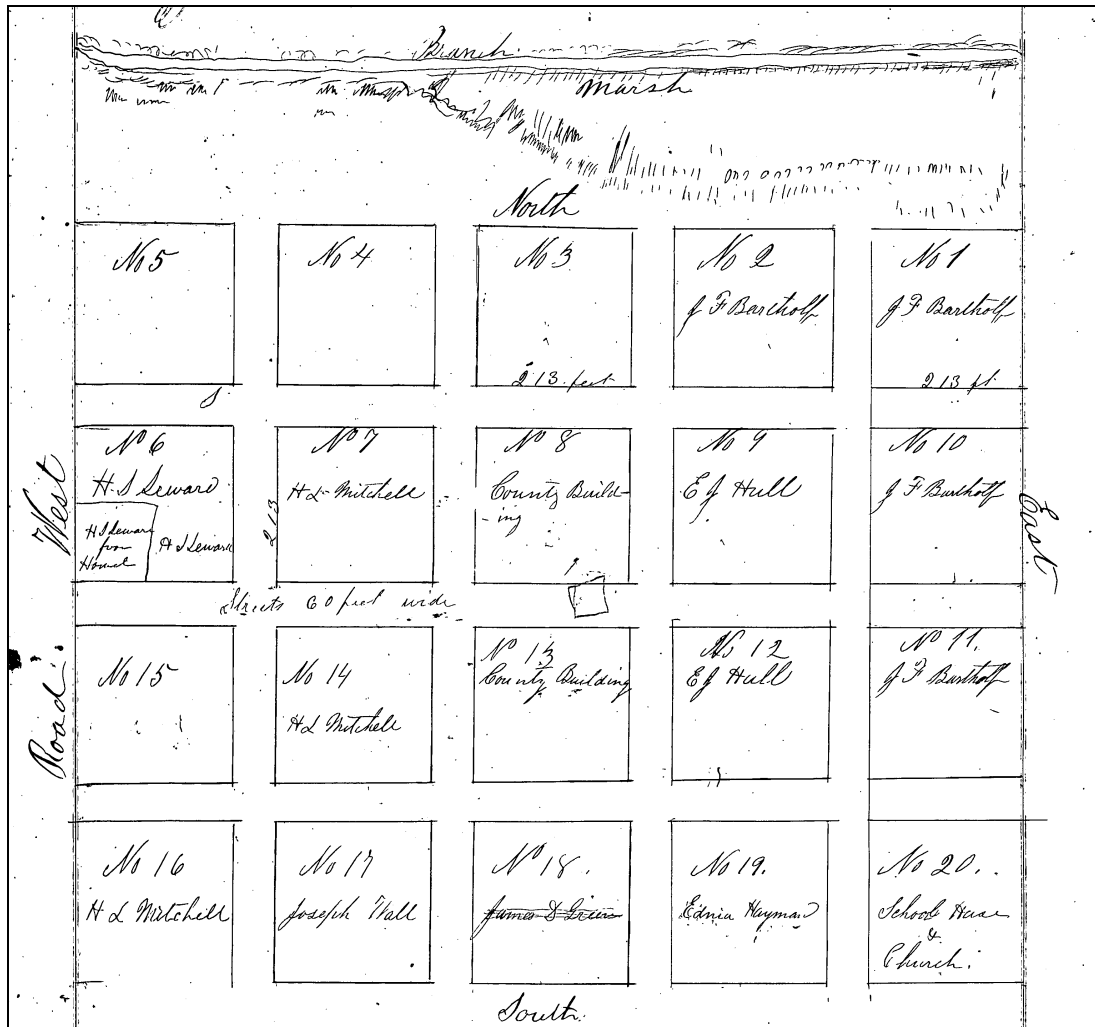 Branch
Marsh
North
No 5
No 4
No 3
213 feet
No 2
J F Bartholf
No 1
J F Bartholf
213 ft
No 6
H. S Seward
H S Seward
from
H S Seward
No 7
H L Mitchell
213
No 8
County Build-
-ing
No 9
E J Hull
No 10
J F Bartholf
West
East
Streets 60 feet wide
No 15
No 14
H L Mitchell
No 13
County Building
No 12
E J Hull
No 11.
J F Bartholf
Road.
No 16
H L Mitchell
No 17
Joseph Hall
No 18.
James D Green
No 19.
Ednia Hayman
No 20.
School House
&
Church.
South.